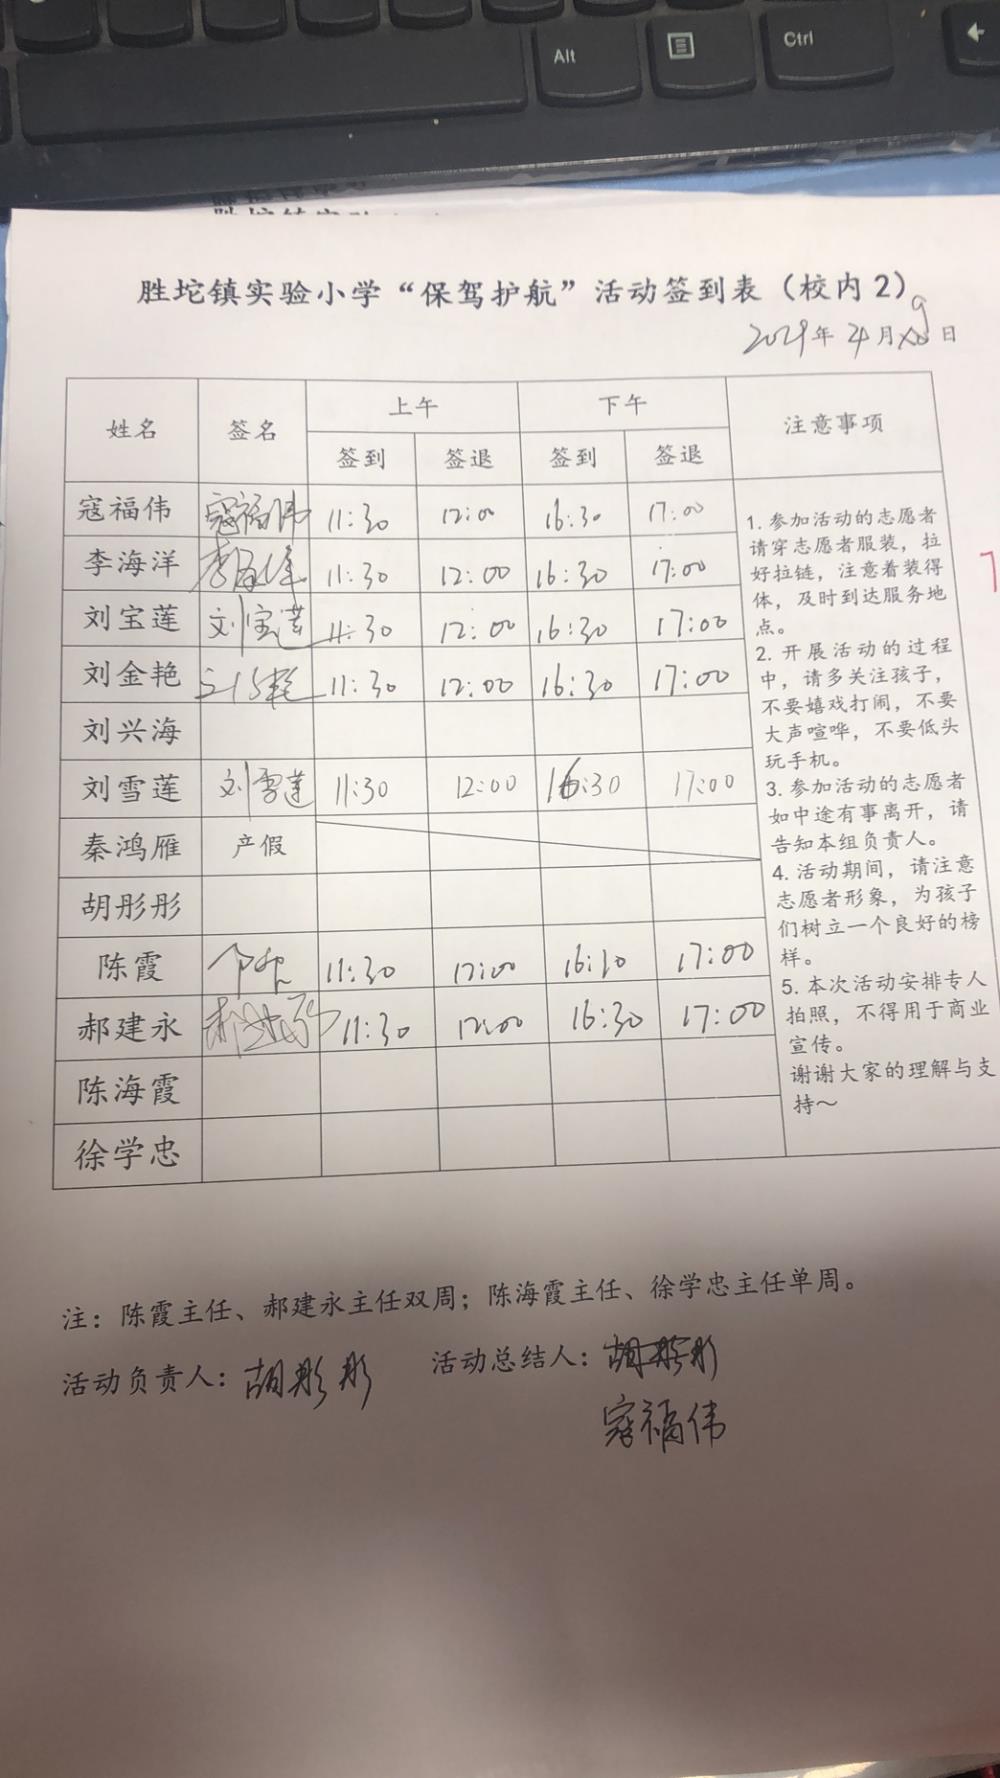 Alt
Ctrl
胜坨镇实验小学“保驾护航”活动签到表（校内2）
年 4月 9日
姓名 签名 上午 下午 注意事项
签到 签退 签到 签退
寇福伟 寇福伟 11:30 12:00 16:30 17:00
李海洋 李海洋 11:30 12:00 16:30 17:00
刘宝莲 刘宝莲 11:30 12:00 16:30 17:00
刘金艳 11:30 12:00 16:30 17:00
刘兴海
刘雪莲 刘雪莲 11:30 12:00 16:30 17:00
秦鸿雁 产假
胡彤彤
陈霞 11:30 12:00 16:30 17:00
郝建永 郝建永 11:30 12:00 16:30 17:00
陈海霞
徐学忠
1. 参加活动的志愿者
请穿志愿者服装，拉
好拉链，注意着装得
体，及时到达服务地
点。
2. 开展活动的过程
中，请多关注孩子，
不要嬉戏打闹，不要
大声喧哗，不要低头
玩手机。
3. 参加活动的志愿者
如中途有事离开，请
告知本组负责人。
4. 活动期间，请注意
志愿者形象，为孩子
们树立一个良好的榜
样。
5. 本次活动安排专人
拍照，不得用于商业
宣传。
谢谢大家的理解与支
持～
注：陈霞主任、郝建永主任双周；陈海霞主任、徐学忠主任单周。
活动负责人：胡彤彤 活动总结人：胡彤彤
寇福伟